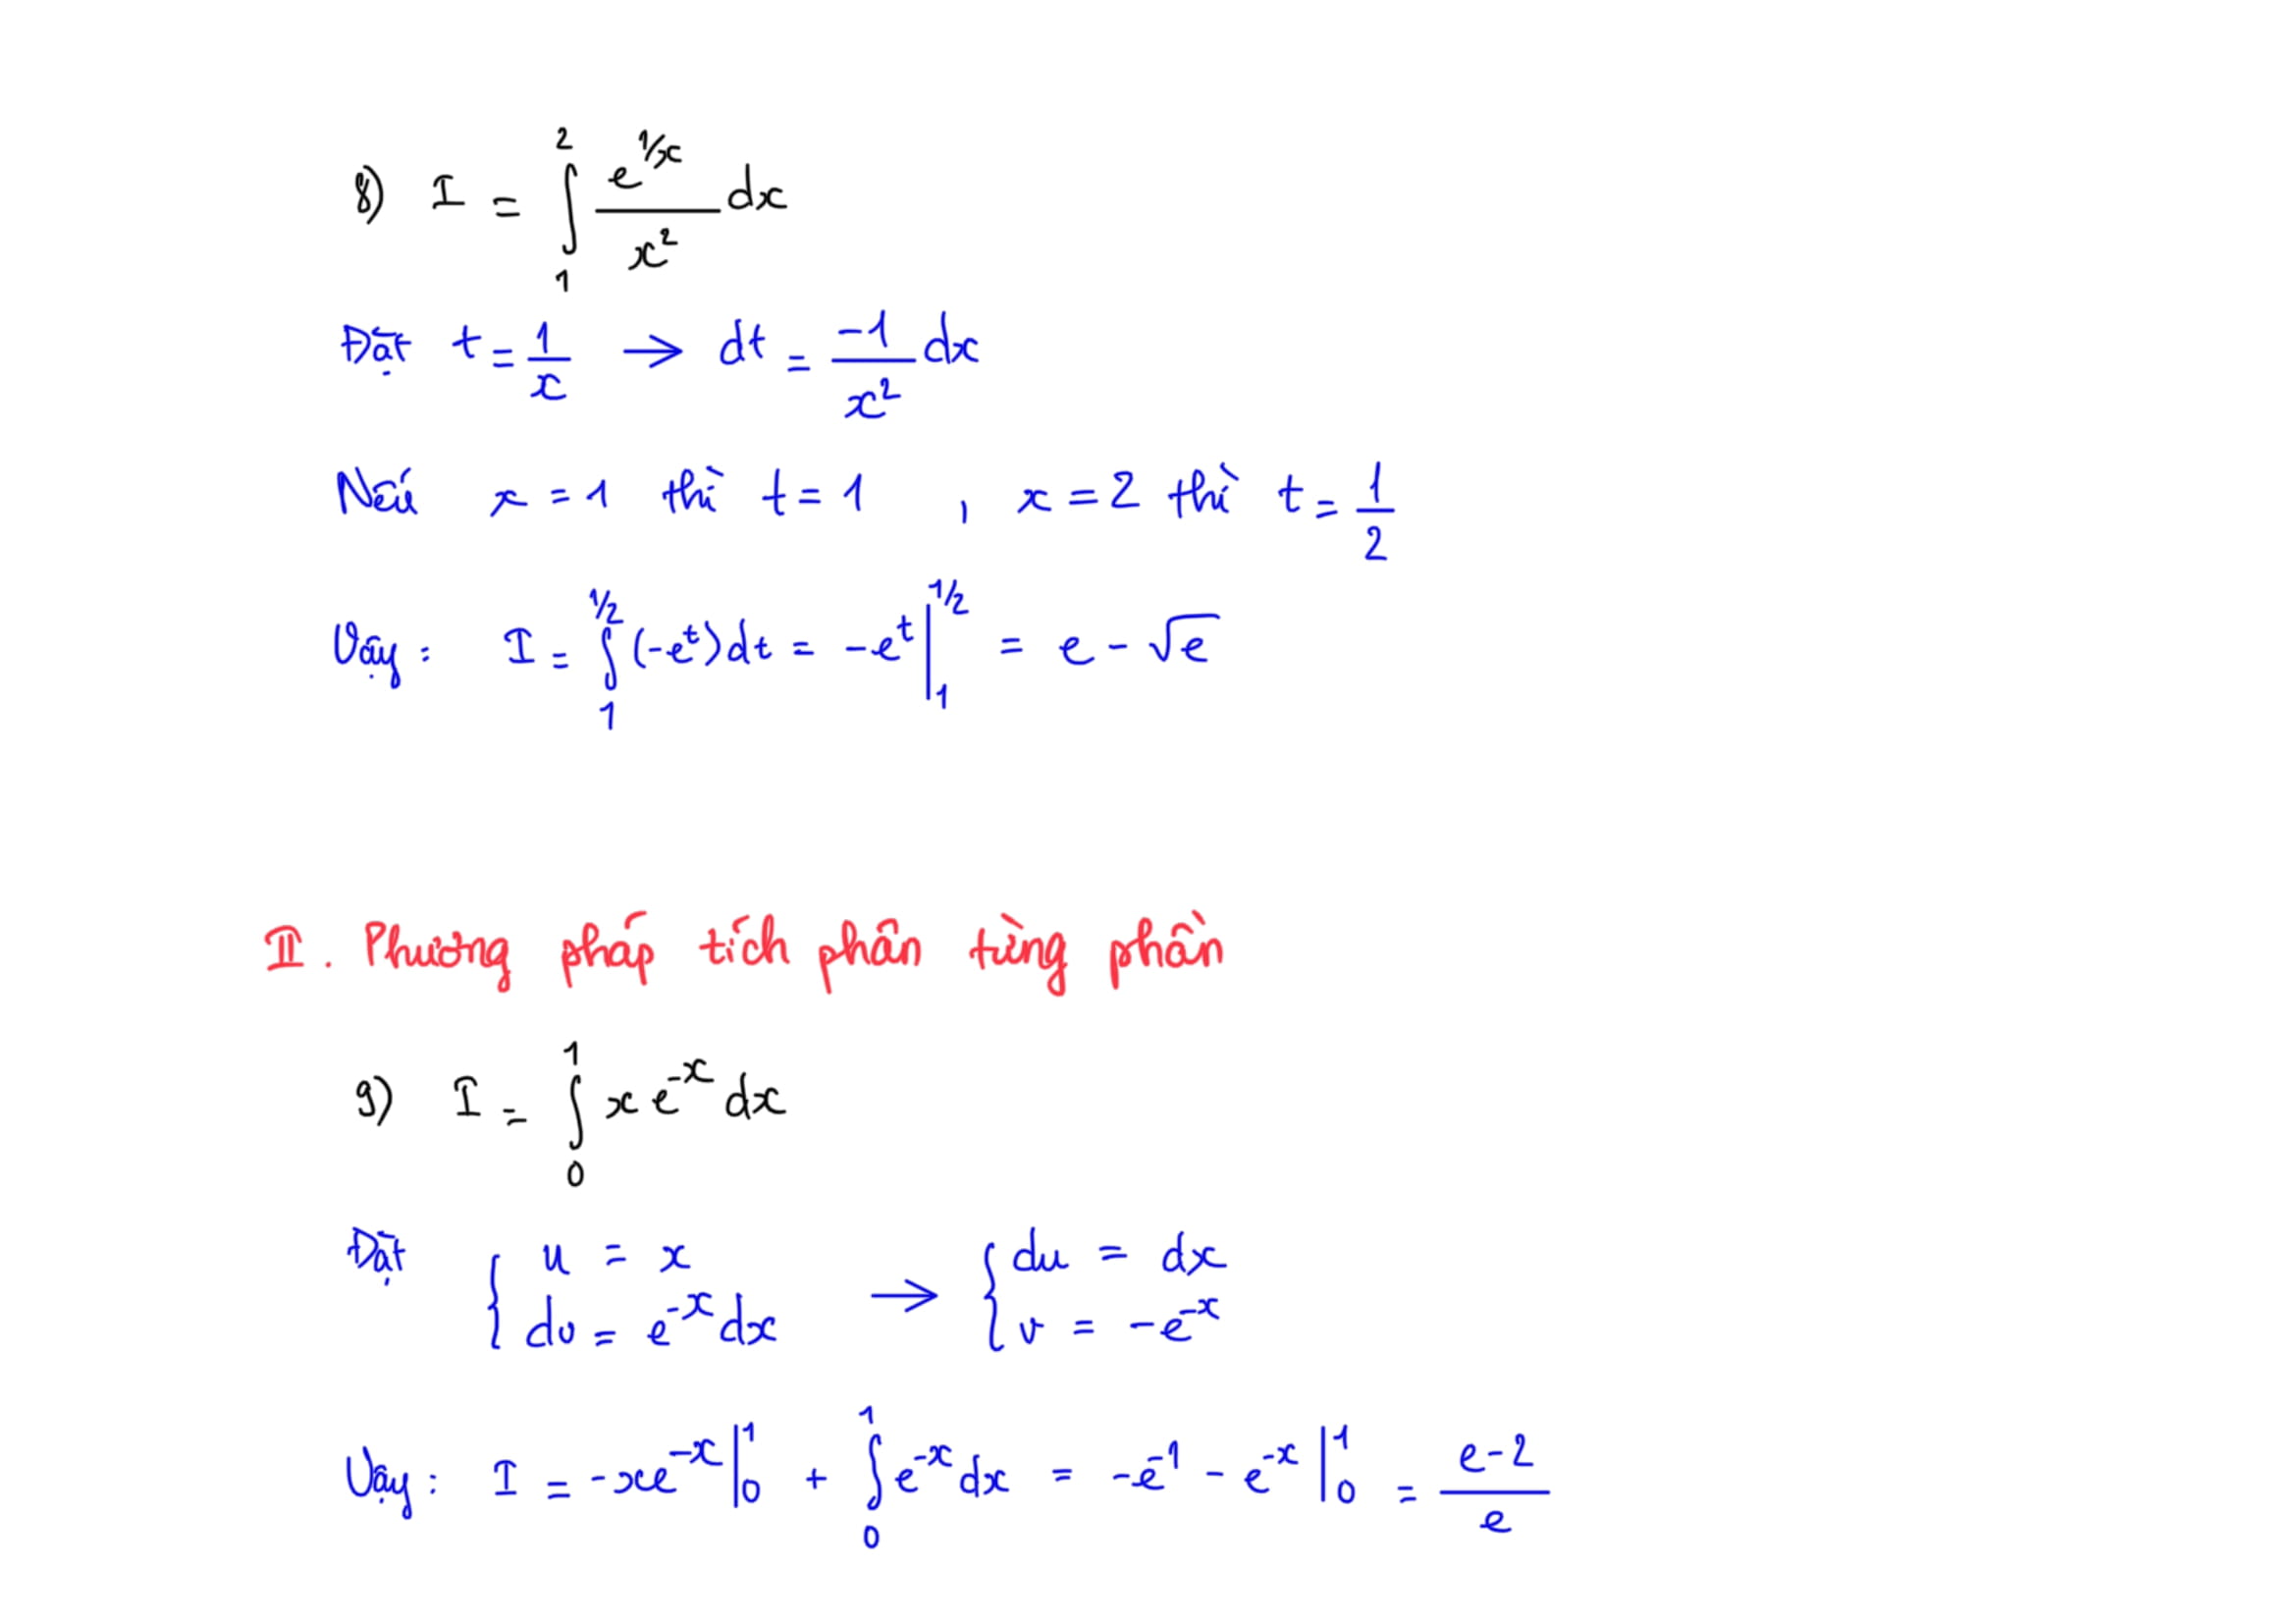 8) I = ∫₁² e^{1/x} / x² dx
Đặt t = 1/x → dt = -1/x² dx
Nếu x = 1 thì t = 1 , x = 2 thì t = 1/2
Vậy : I = ∫₁^{1/2} (-e^t) dt = -e^t |₁^{1/2} = e - √e
II. Phương pháp tích phân từng phần
9) I = ∫₀¹ x e^{-x} dx
Đặt { u = x → { du = dx
dv = e^{-x} dx v = -e^{-x}
Vậy : I = -xe^{-x} |₀¹ + ∫₀¹ e^{-x} dx = -e^{-1} - e^{-x} |₀¹ = (e-2)/e